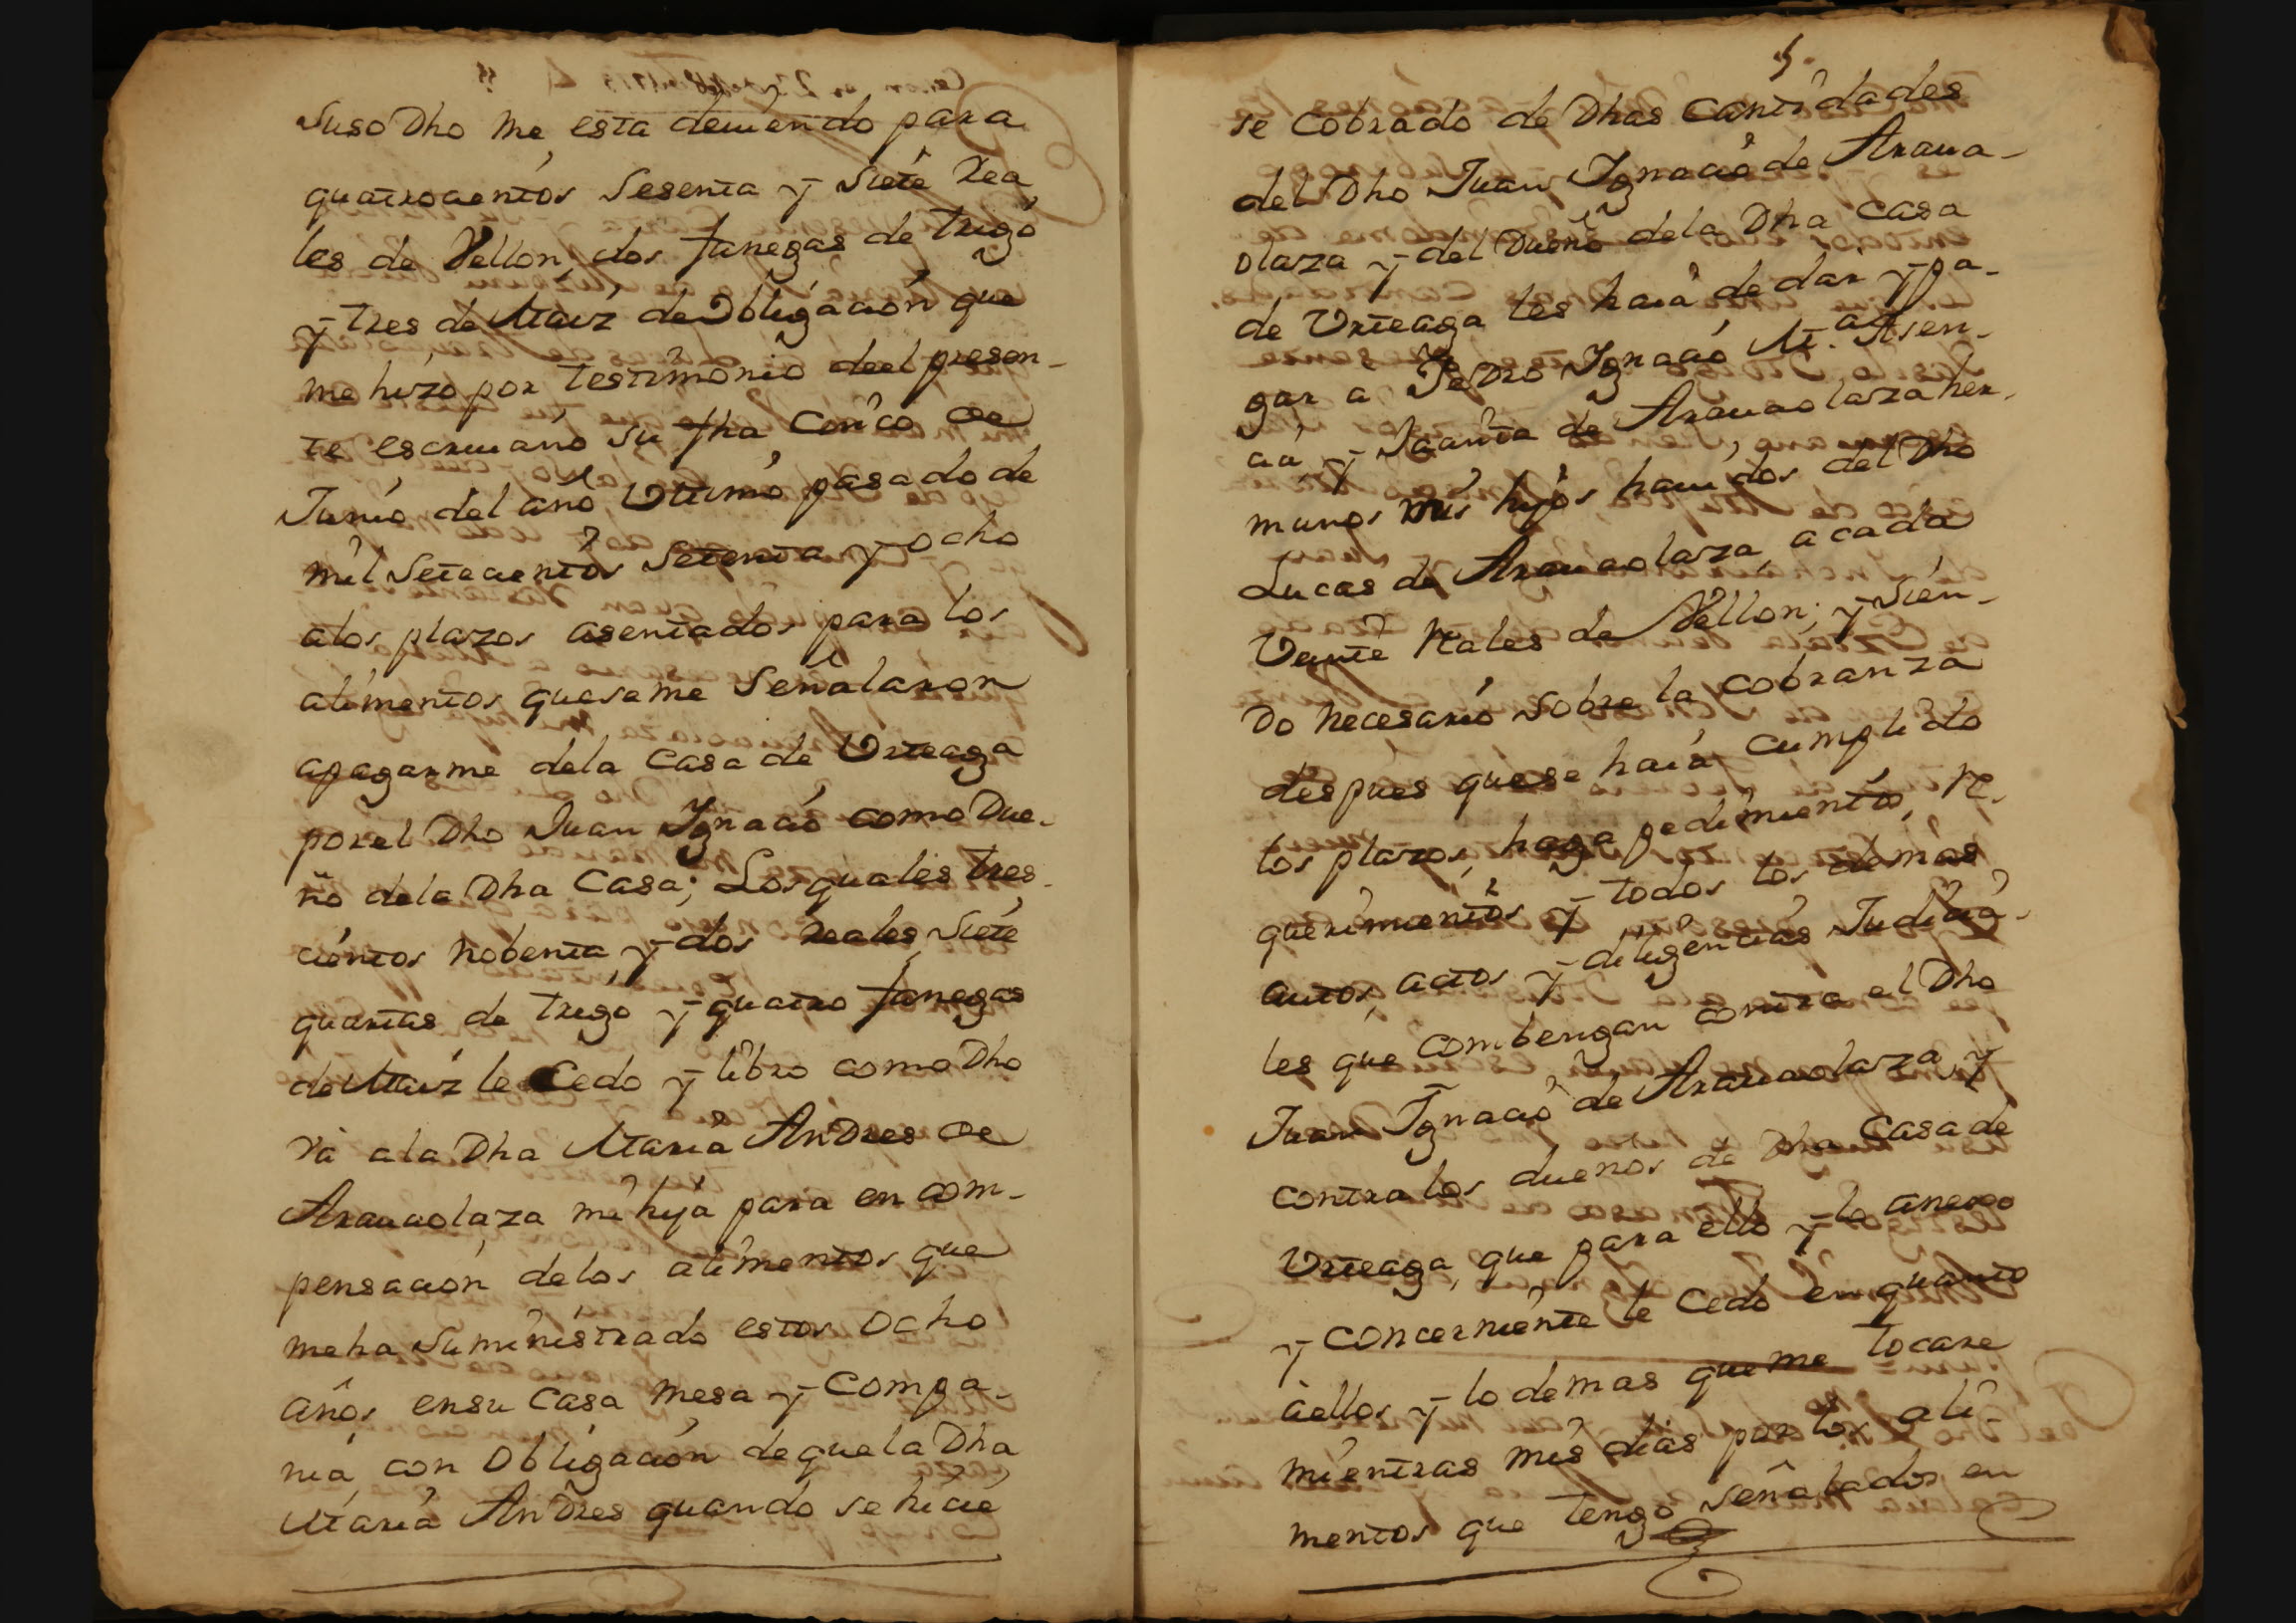 suso Dho me esta deviendo para
quatrocientos Sesenta y Siete Rea
les de Vellon, dos fanegas de trigo
y tres de Maiz de Obligación que
me hizo por testimonio deel presen-
te escrivano su fha Cinco de
Junio del año Ultimo pasado de
mil Setecientos Setenta y ocho
alos plazos asentados para los
alimentos que se me Señalaron
apagarme dela Casa de Urteaga
por el Dho Juan Ygnacio como Due-
ño dela Dha Casa; Los quales tres
cientos nobenta, y dos Reales, Siete
quartas de trigo y quatro fanegas
de Maiz le Cedo y libro como Dho
va ala Dha Maria Andres de
Aramaolaza mi hija para en com-
pensacion delos alimentos que
me ha Suministrado estos ocho
años en su Casa mesa y Compa-
nia, con Obligación de que la Dha
Maria Andres quando se hicie
5.
se Cobrado de Dhas Cantidades
del Dho Juan Ygnacio de Arama-
olaza y del Dueño dela Dha Casa
de Urteaga les haia de dar y pa-
gar a Pedro Ygnacio, Ma. Asen-
cia, y Jacinta de Aramaolaza her-
manos mis hijos havidos del Dho
Lucas de Aramaolaza, a cada
Veinte Rales de Vellon; y Sien-
do necesario Sobre la cobranza
despues que se haia cumplido
los plazos, haga pedimiento, re-
querimientos y todos los demás
autos, actos y diligencias Judicia-
les que combengan contra el Dho
Juan Ygnacio de Aramaolaza, y
contra los dueños de Dha Casa de
Urteaga, que para ello y lo anexo
y concerniente le Cedo en quanto
à ellos y lo demas que me tocare
mientras mis dias por los ali-
mentos que tengo Señalados en